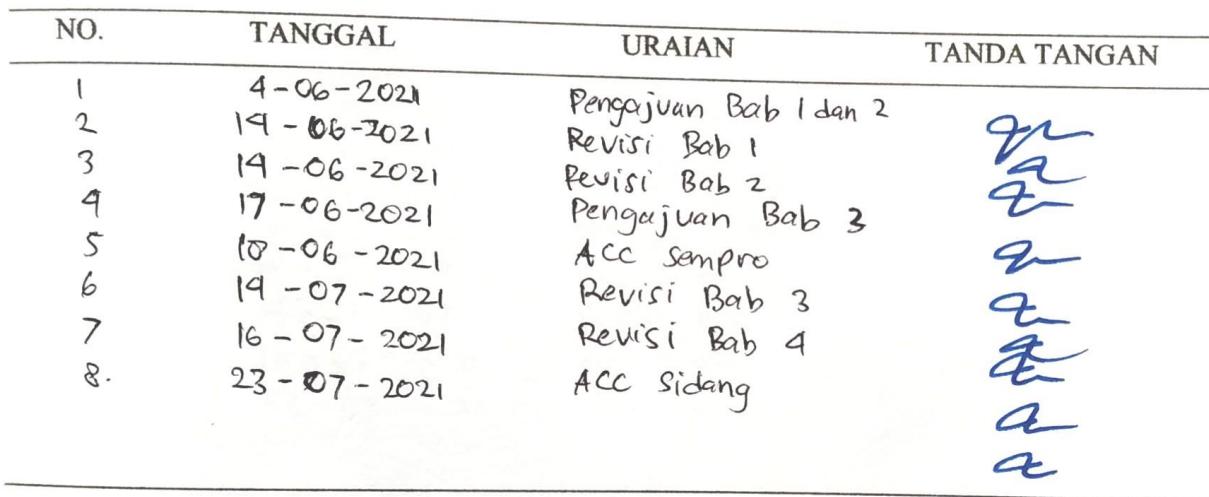 NO. TANGGAL URAIAN TANDA TANGAN
1 4-06-2021 Pengajuan Bab 1 dan 2
2 14-06-2021 Revisi Bab 1
3 14-06-2021 Revisi Bab 2
4 17-06-2021 Pengajuan Bab 3
5 18-06-2021 ACC sempro
6 14-07-2021 Revisi Bab 3
7 16-07-2021 Revisi Bab 4
8. 23-07-2021 ACC Sidang